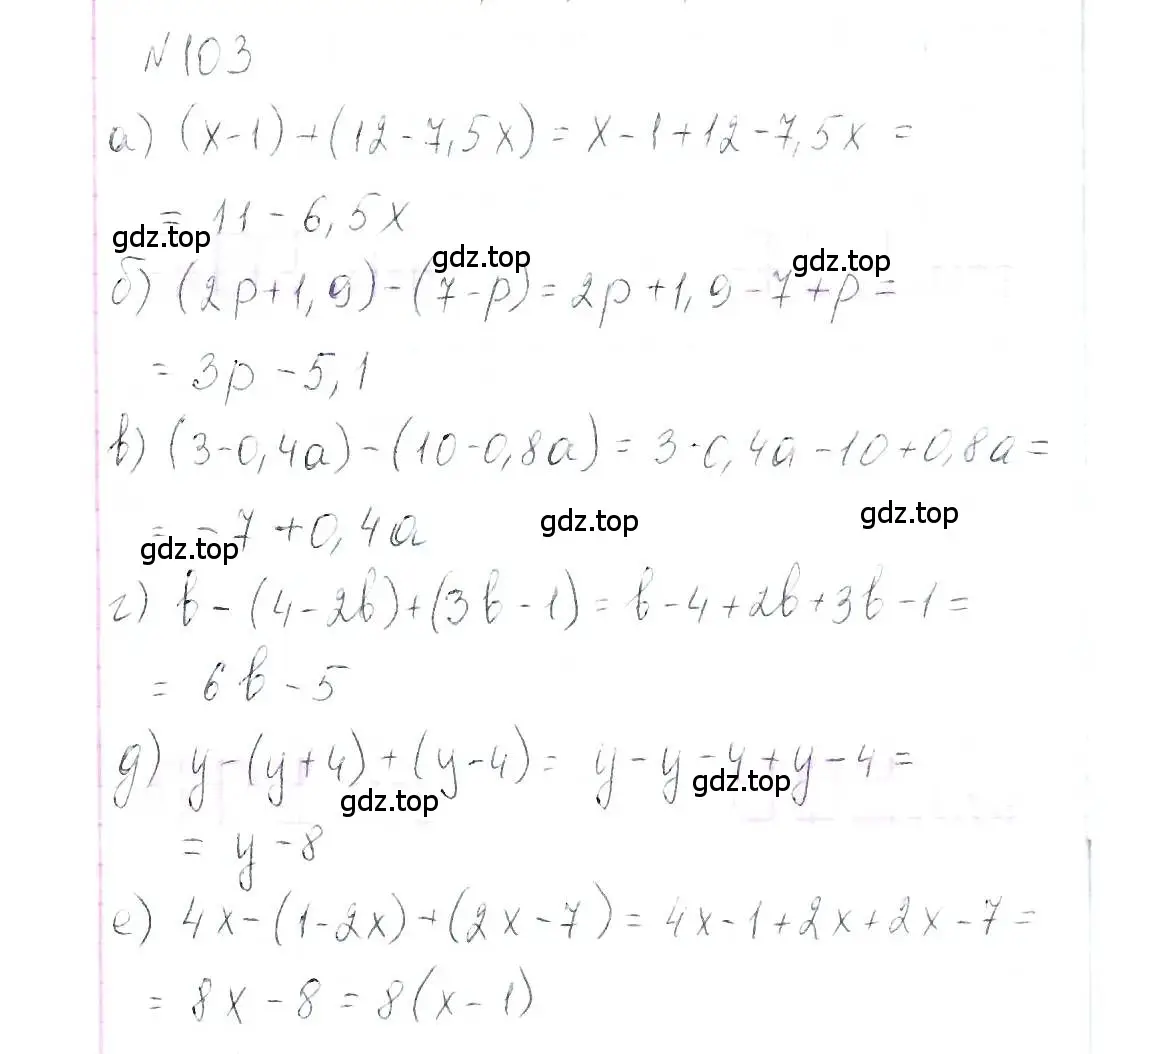 N 103
а) (x-1)+(12-7,5x) = x-1+12-7,5x =
= 11-6,5x
gdz.top
gdz.top
gdz.top
б) (2p+1,9)-(7-p) = 2p+1,9-7+p =
= 3p-5,1
в) (3-0,4a)-(10-0,8a) = 3-0,4a-10+0,8a =
= -7+0,4a
gdz.top
gdz.top
gdz.top
г) b-(4-2b)+(3b-1) = b-4+2b+3b-1 =
= 6b-5
д) y-(y+4)+(y-4) = y-y-4+y-4 =
gdz.top
gdz.top
= y-8
е) 4x-(1-2x)+(2x-7) = 4x-1+2x+2x-7 =
= 8x-8 = 8(x-1)